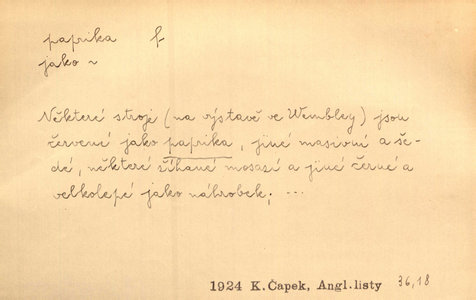 paprika f
jako ~
Některé stroje (na výstavě ve Wembley) jsou
červené jako paprika, jiné masivní a še-
dé, některé šíhané mosazí a jiné černé a
velkolepé jako náhrobek; ...
1924 K.Čapek, Angl.listy 36,18